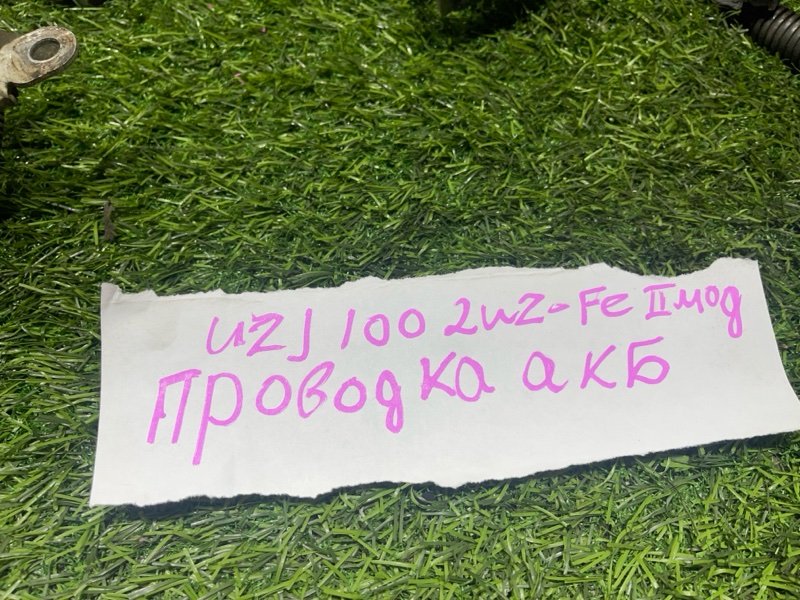 UZJ 100 2UZ-Fe II мод
Проводка акБ